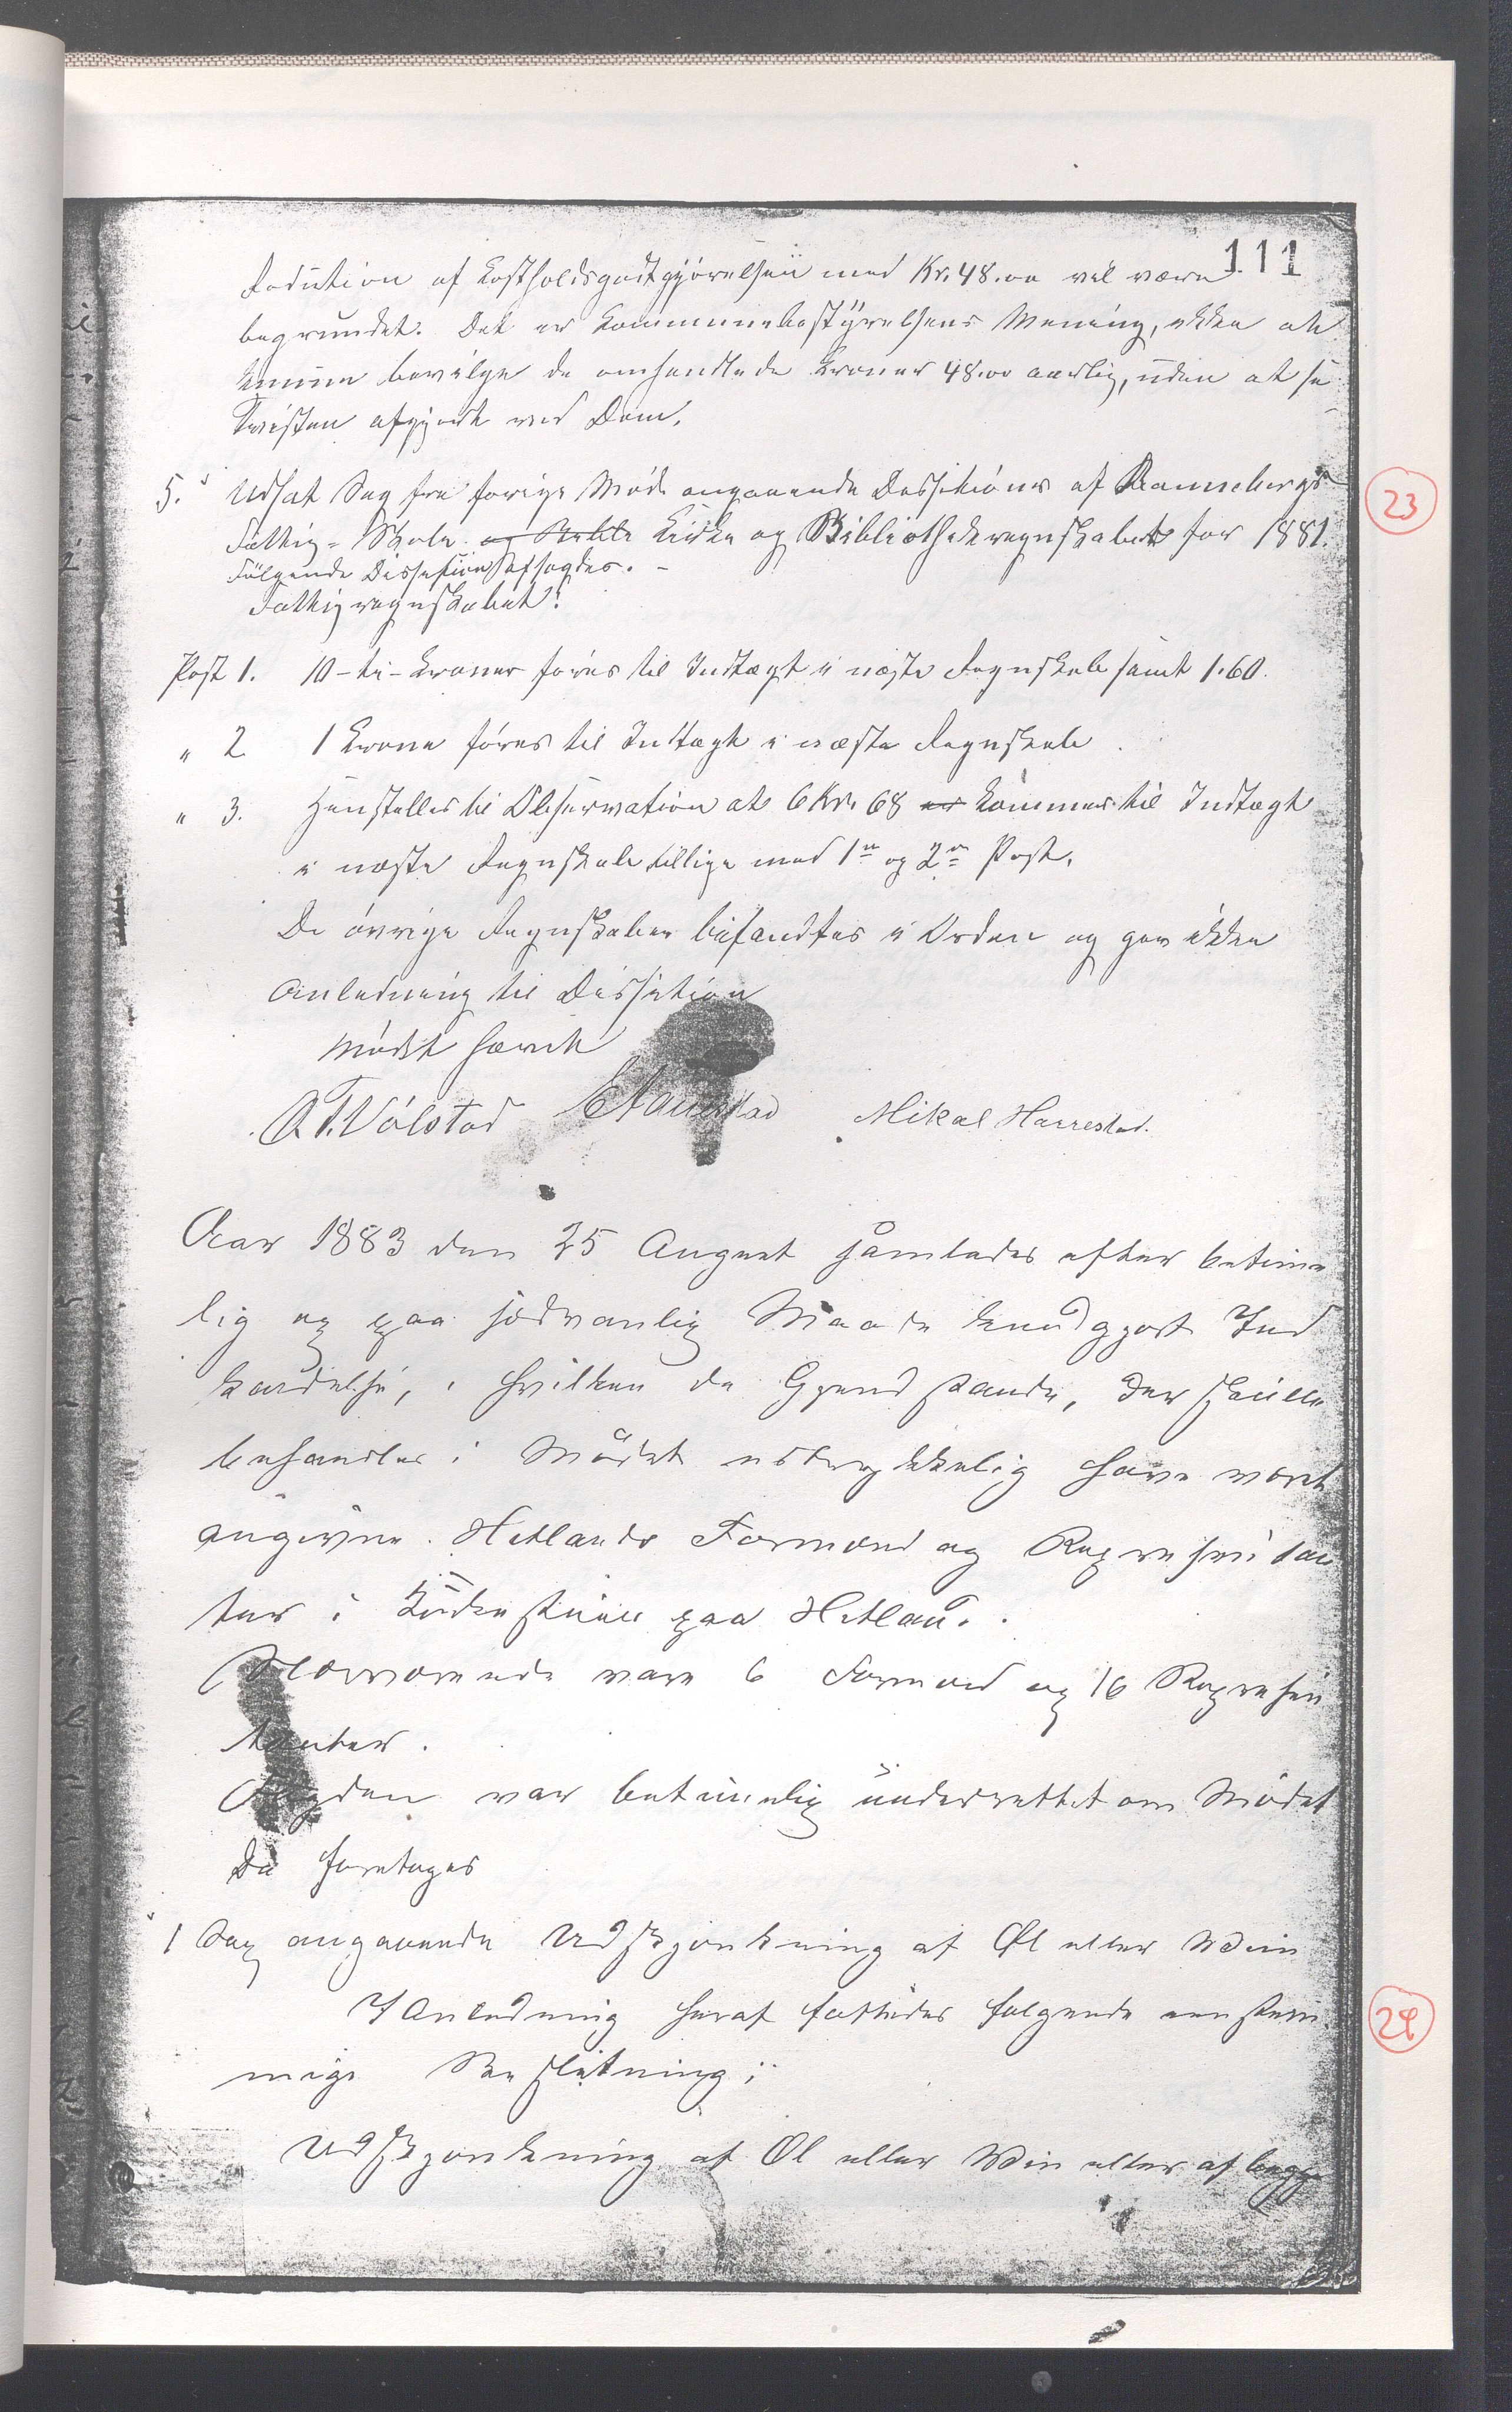 111
Reduction af Kostholdsgodtgjørelsen med Kr. 48.00 vel være
begrundet. Det er Kommunebestyrelsens Mening, ikke at
kunne bevilge de omhandlede Kroner 48.00 aarlig, uden at se
Tvisten afgjordt ved Dom.
5. Udsat Sag fra forige Møde angaaende Desitioner af Rannebergs
Fattig- Skole- og Kirke og Bibliothekregnskabet for 1881.
Følgende Dessition afsagdes. -
Fattigregnskabet:
Post 1. 10 - ti - Kroner føres til Indtægt i næste Regnskab samt 1.60.
" 2 1 Krone føres til Indtægt i næste Regnskab.
" 3. Henstilles til Observation at 6 Kr. 68 er kommer til Indtægt
i næste Regnskab tillige med 1ste og 2den Post.
De øvrige Regnskaber befandtes i Orden og gav ikke
Anledning til Dessition
Mødet hævet
O. T. Vølstad Mikal Harrestad.
Aar 1883 den 25 August samledes efter betime
lig og paa sedvanlig Maade kundgjort Ind
kaldelse, i hvilken de Gjenstande, der skulle
behandles i Mødet udtrykkelig have været
angivne. Hetlands Formænd og Repræsentan
ter i Kirkestuen paa Hetland.
Nærværende vare 6 Formænd og 16 Repræsen
tanter.
Fogden var betimelig underrettet om Mødet
Da foretoges
1 Sag angaaende Udskjænkning af Øl eller Viin
I Anledning heraf fattedes følgende eenstem
mige Beslutning:
Udskjænkning af Øl eller Viin eller af begge
23
24